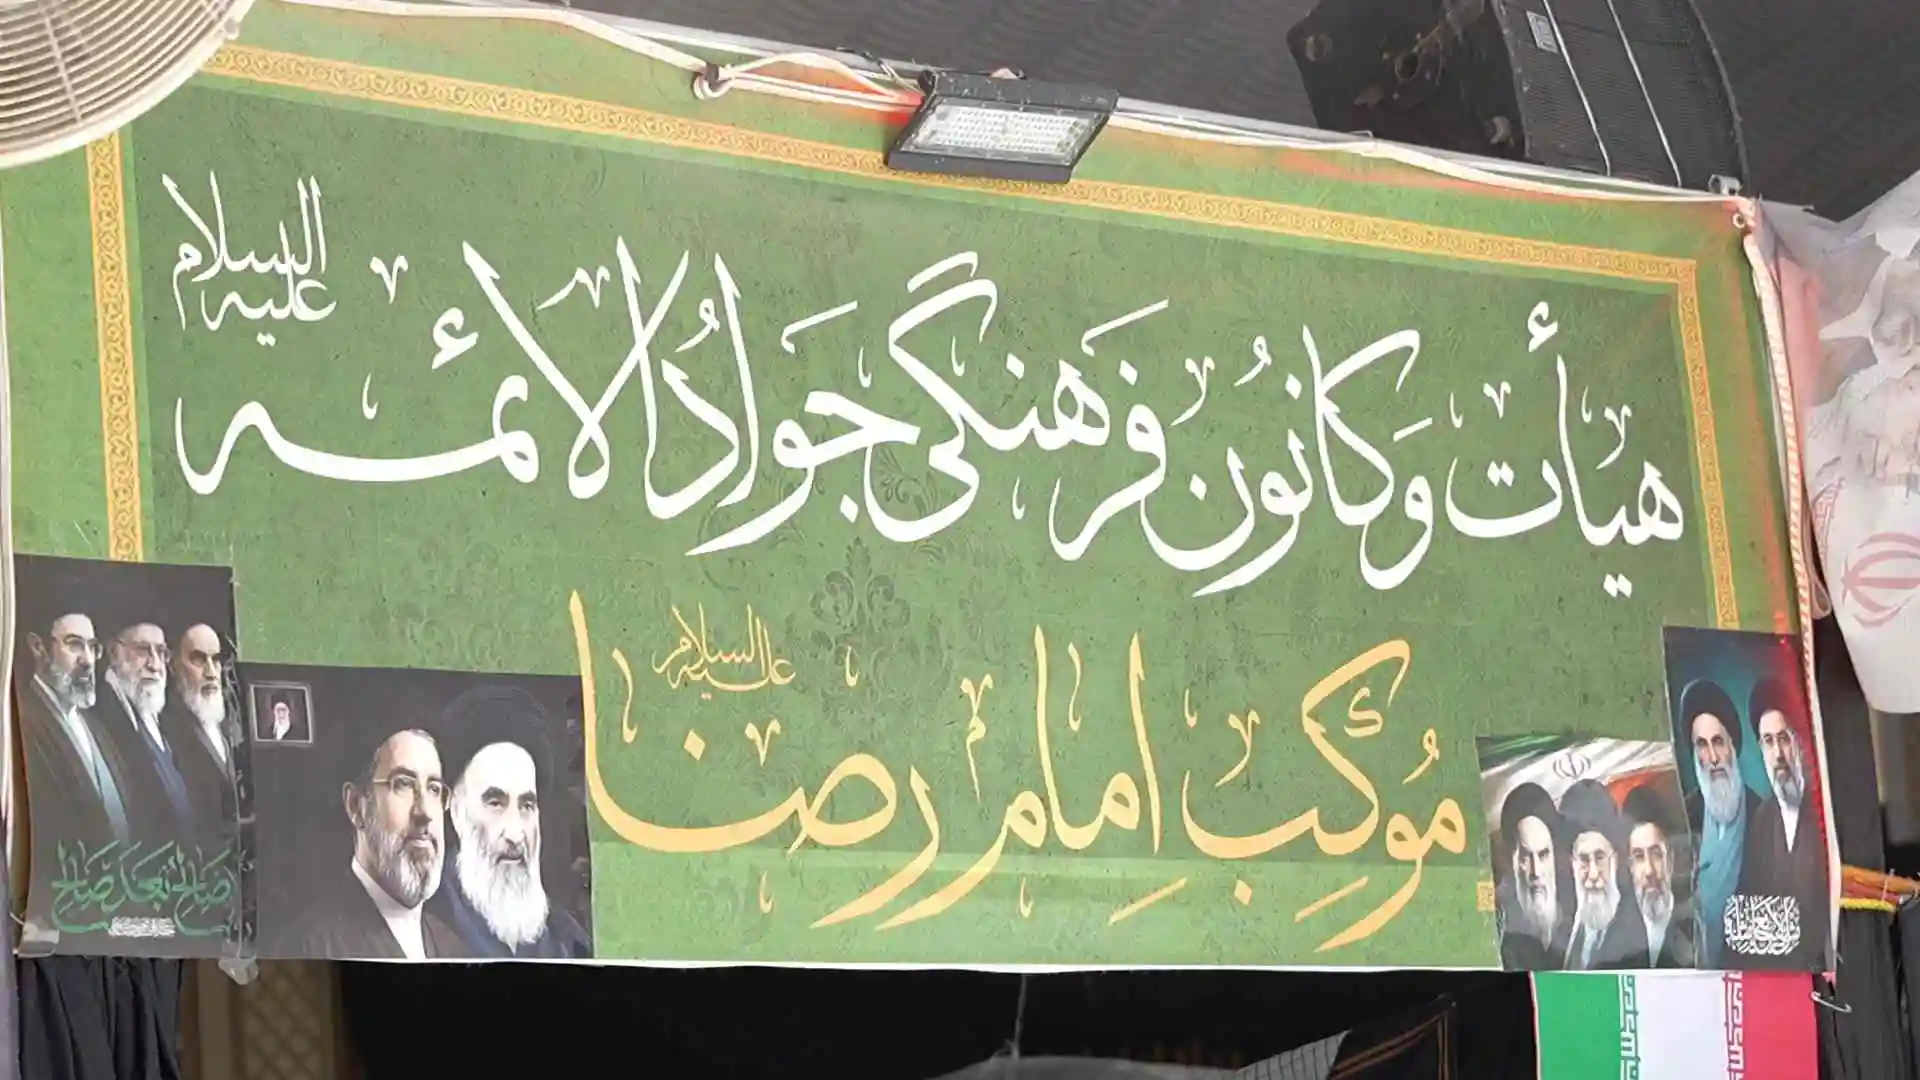 هیأت و کانون فرهنگی جواد الائمه علیه السلام
موکب امام رضا علیه السلام
صالح بعد صالح